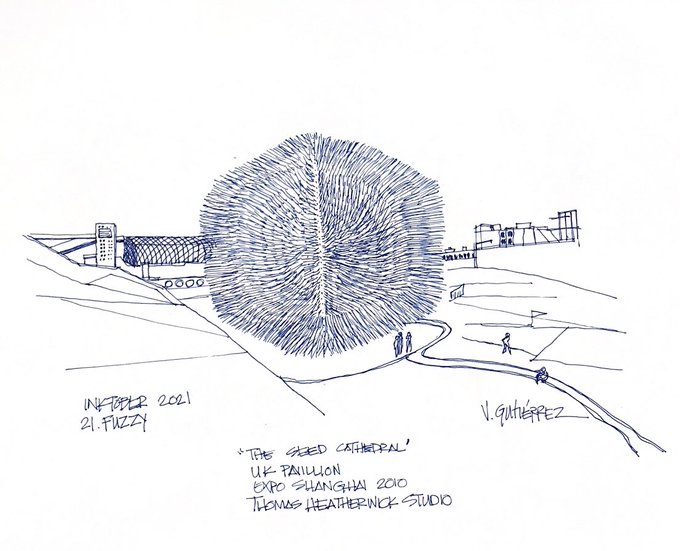 INKTOBER 2021
21. FUZZY
V. GUTIÉRREZ
"THE SEED CATHEDRAL"
UK PAVILLION
EXPO SHANGHAI 2010
THOMAS HEATHERWICK STUDIO